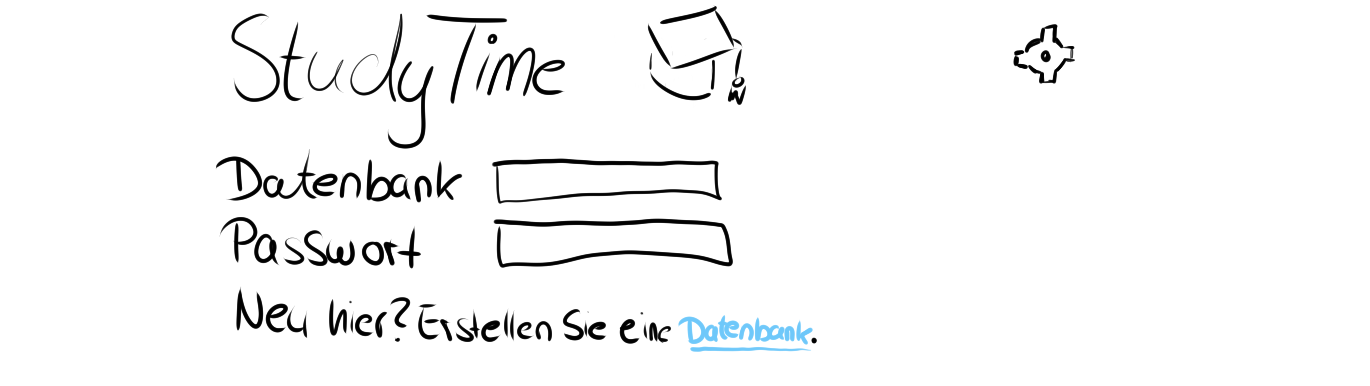 StudyTime
Datenbank
Passwort
Neu hier? Erstellen Sie eine Datenbank.